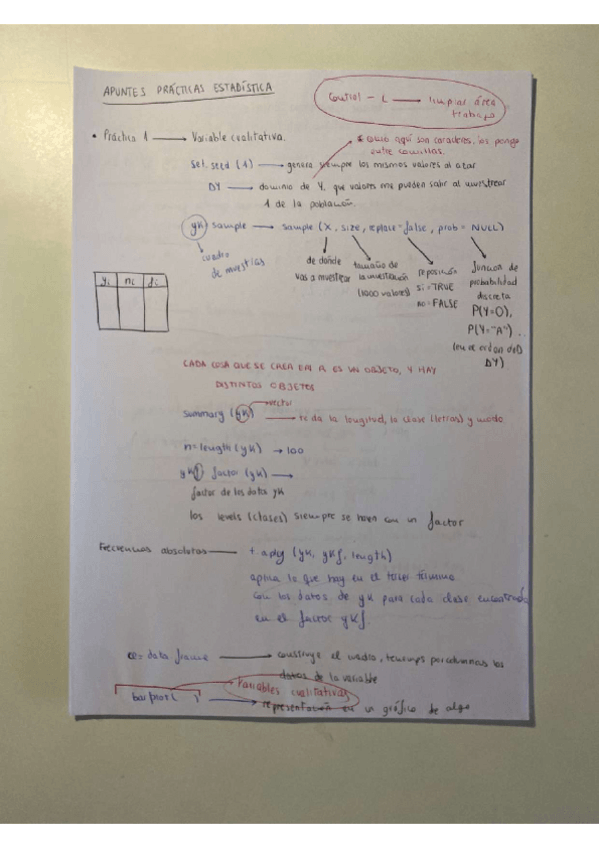 APUNTES PRÁCTICAS ESTADÍSTICA
Control - L → limpiar área
trabajo
• Práctica 1 → Variable cualitativa.
* como aquí son caracteres, los pongo
entre comillas.
Set.seed (1) → genera siempre los mismos valores al azar
DY → dominio de Y, que valores me pueden salir al muestrear
1 de la población.
yk sample → sample (X, size, replace=false, prob = NULL)
cuadro
de muestras
de donde
vas a muestrear
tamaño de
la muestra
(1000 valores)
reposición
si = TRUE
no = FALSE
función de
probabilidad
discreta
P(Y=0),
P(Y="A")...
(en el orden del
DY)
yi ni fi
CADA COSA QUE SE CREA EN R ES UN OBJETO, Y HAY
DISTINTOS OBJETOS
vector
summary (yk) → te da la longitud, la clase (letras) y modo
n=length (yk) → 100
ykf factor (yk) →
factor de los datos yk
los levels (clases) siempre se hacen con un factor
Frecuencias absolutas → t.aply (yk, ykf, length)
aplica lo que hay en el tercer término
con los datos de yk para cada clase encontrada
en el factor ykf.
data frame → construye el cuadro, por columnas los
datos de la variable
Variables cualitativas
barplot ( ) → representación en un gráfico de algo